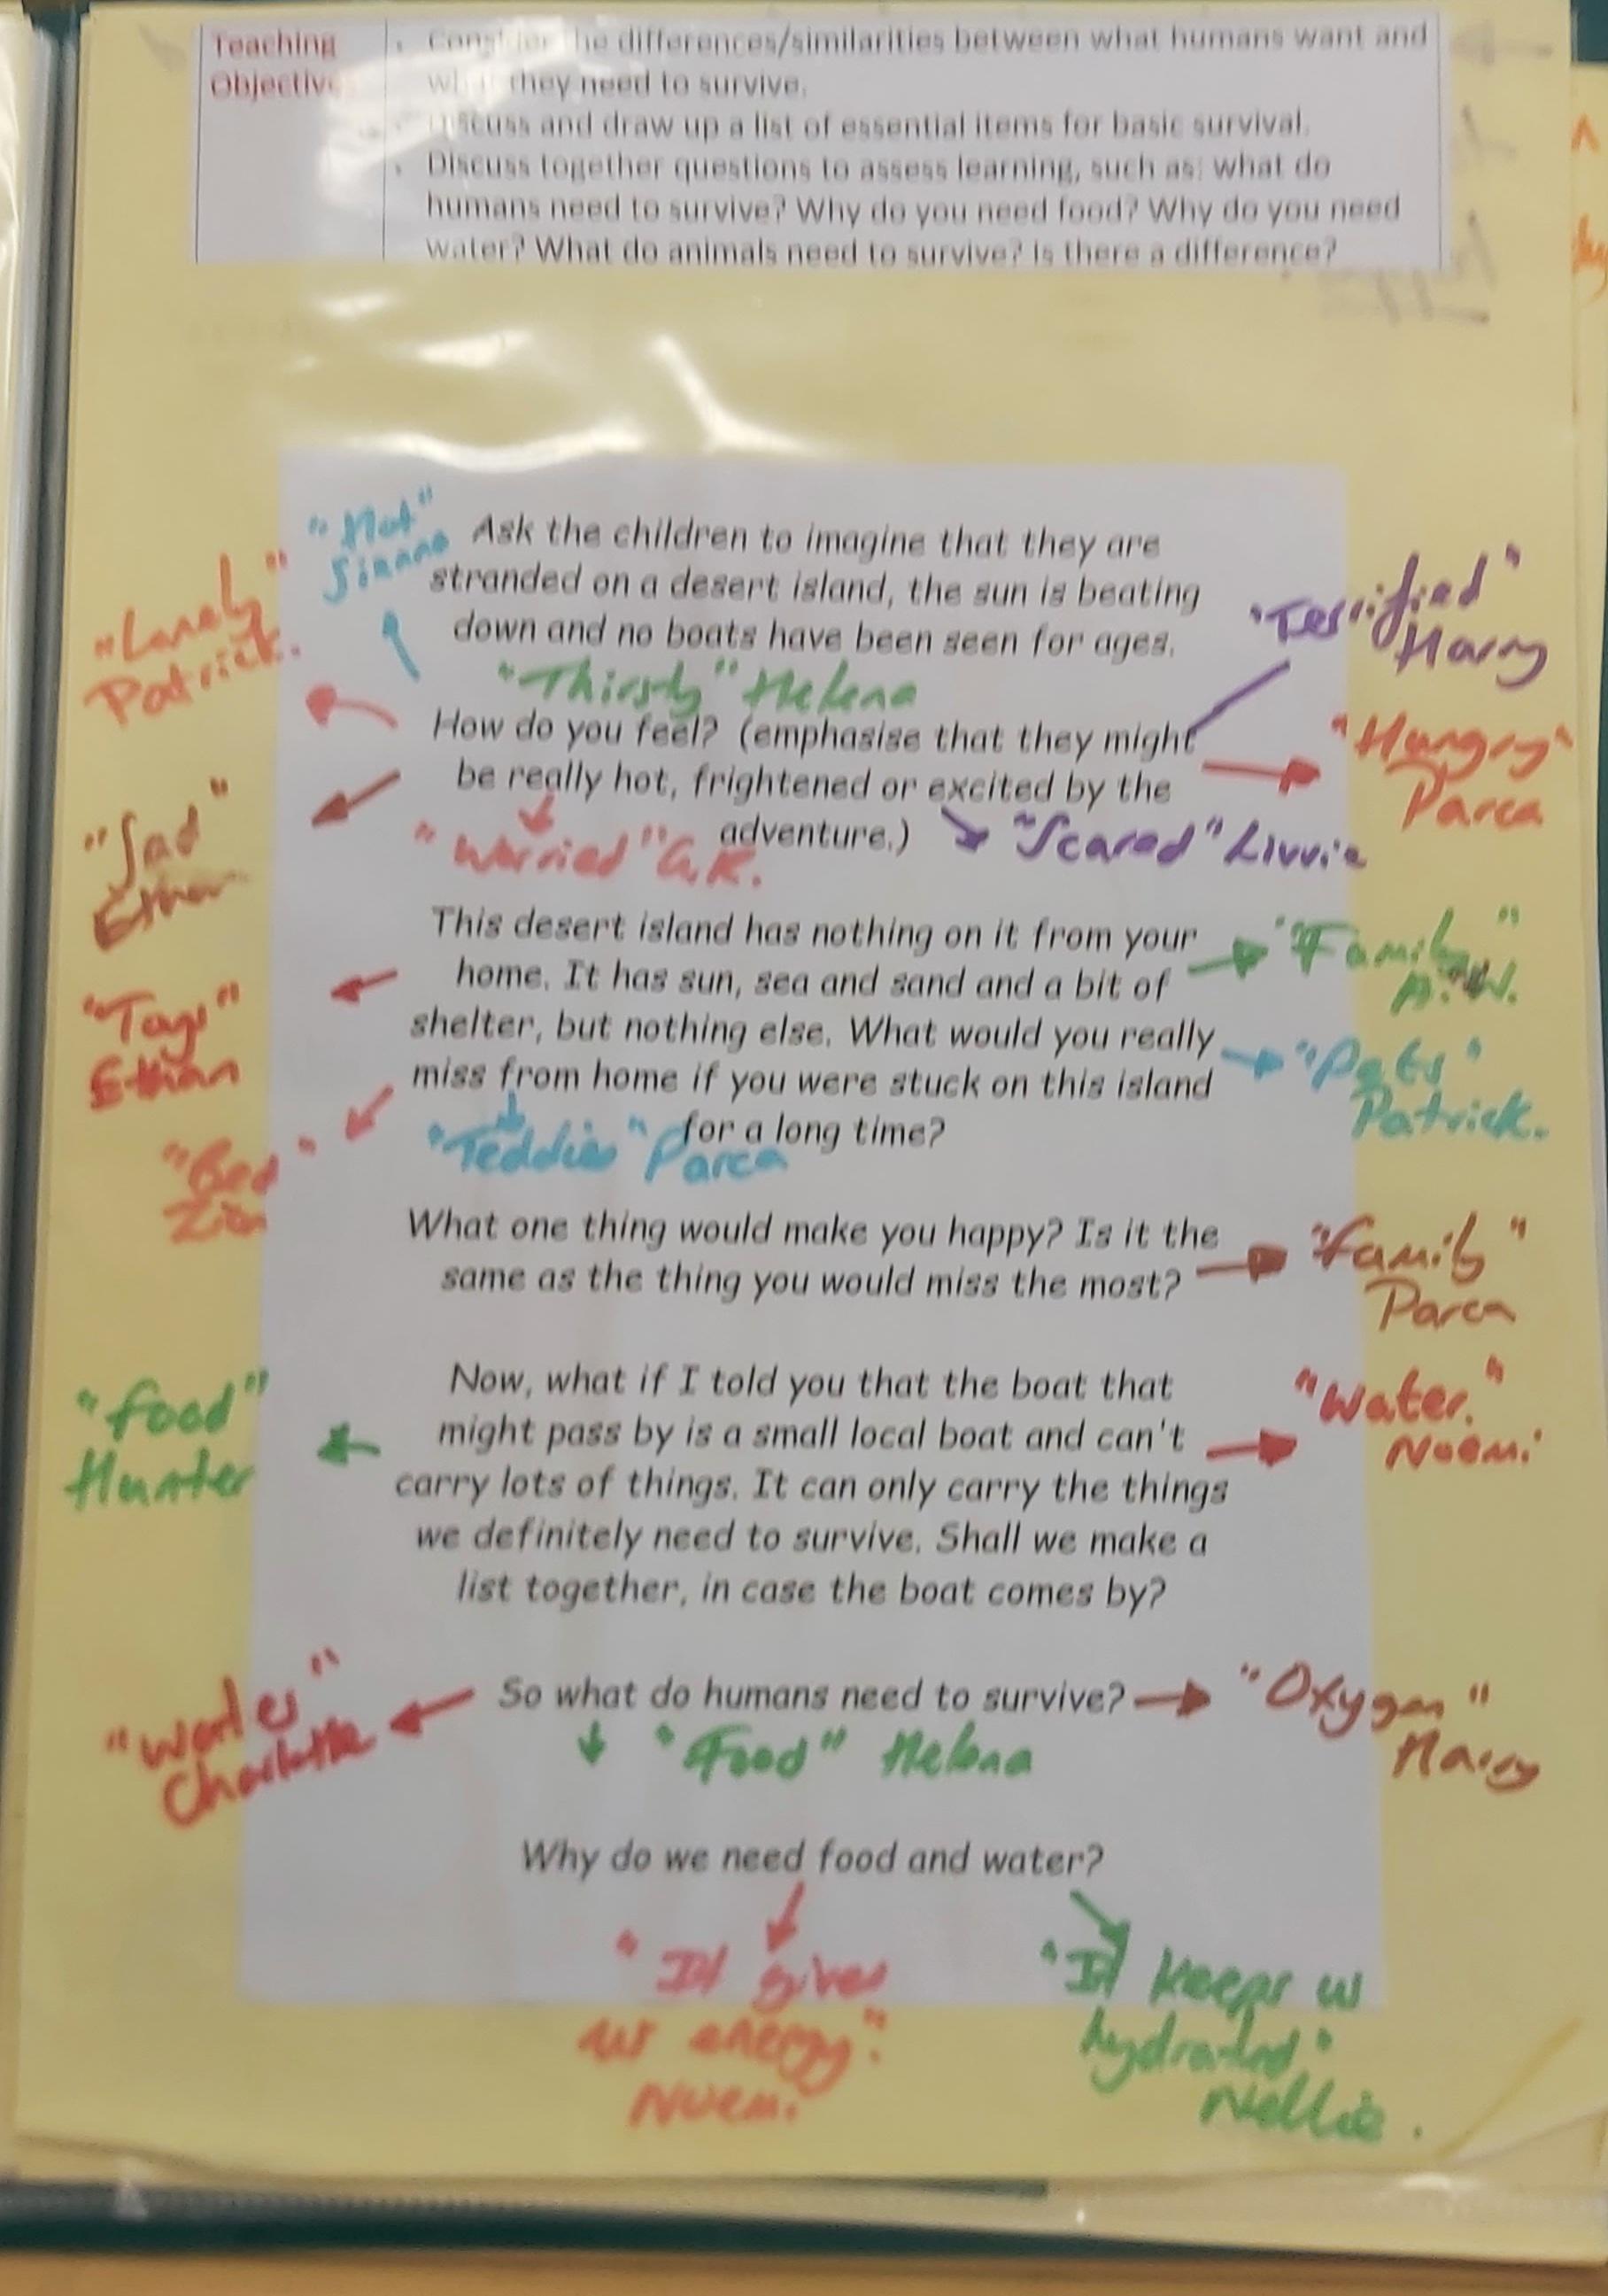 Teaching
Objective
Consider the differences/similarities between what humans want and
what they need to survive.
Discuss and draw up a list of essential items for basic survival.
Discuss together questions to assess learning, such as: what do
humans need to survive? Why do you need food? Why do you need
water? What do animals need to survive? Is there a difference?
"Hot"
Ask the children to imagine that they are
stranded on a desert island, the sun is beating
down and no boats have been seen for ages.
"Lonely"
Patrick.
"Terrified"
Harry
"Thirsty" Helena
How do you feel? (emphasise that they might
be really hot, frightened or excited by the
adventure.)
"Hungry"
Parca
"Sad"
Ethan
"Worried" G.R.
"Scared" Livvie
This desert island has nothing on it from your
home. It has sun, sea and sand and a bit of
shelter, but nothing else. What would you really
miss from home if you were stuck on this island
for a long time?
"Family"
A.W.
"Toys"
Ethan
"Pets"
Patrick.
"Bed"
Zion
"Teddies" Parca
What one thing would make you happy? Is it the
same as the thing you would miss the most?
"Family"
Parca
Now, what if I told you that the boat that
might pass by is a small local boat and can't
carry lots of things. It can only carry the things
we definitely need to survive. Shall we make a
list together, in case the boat comes by?
"food"
Hunter
"Water."
Noemi
So what do humans need to survive?
"Water"
Charlotte
"Oxygen"
Harry
"Food" Helena
Why do we need food and water?
"It gives
us energy."
Noemi
"It keeps us
hydrated."
Nellie.